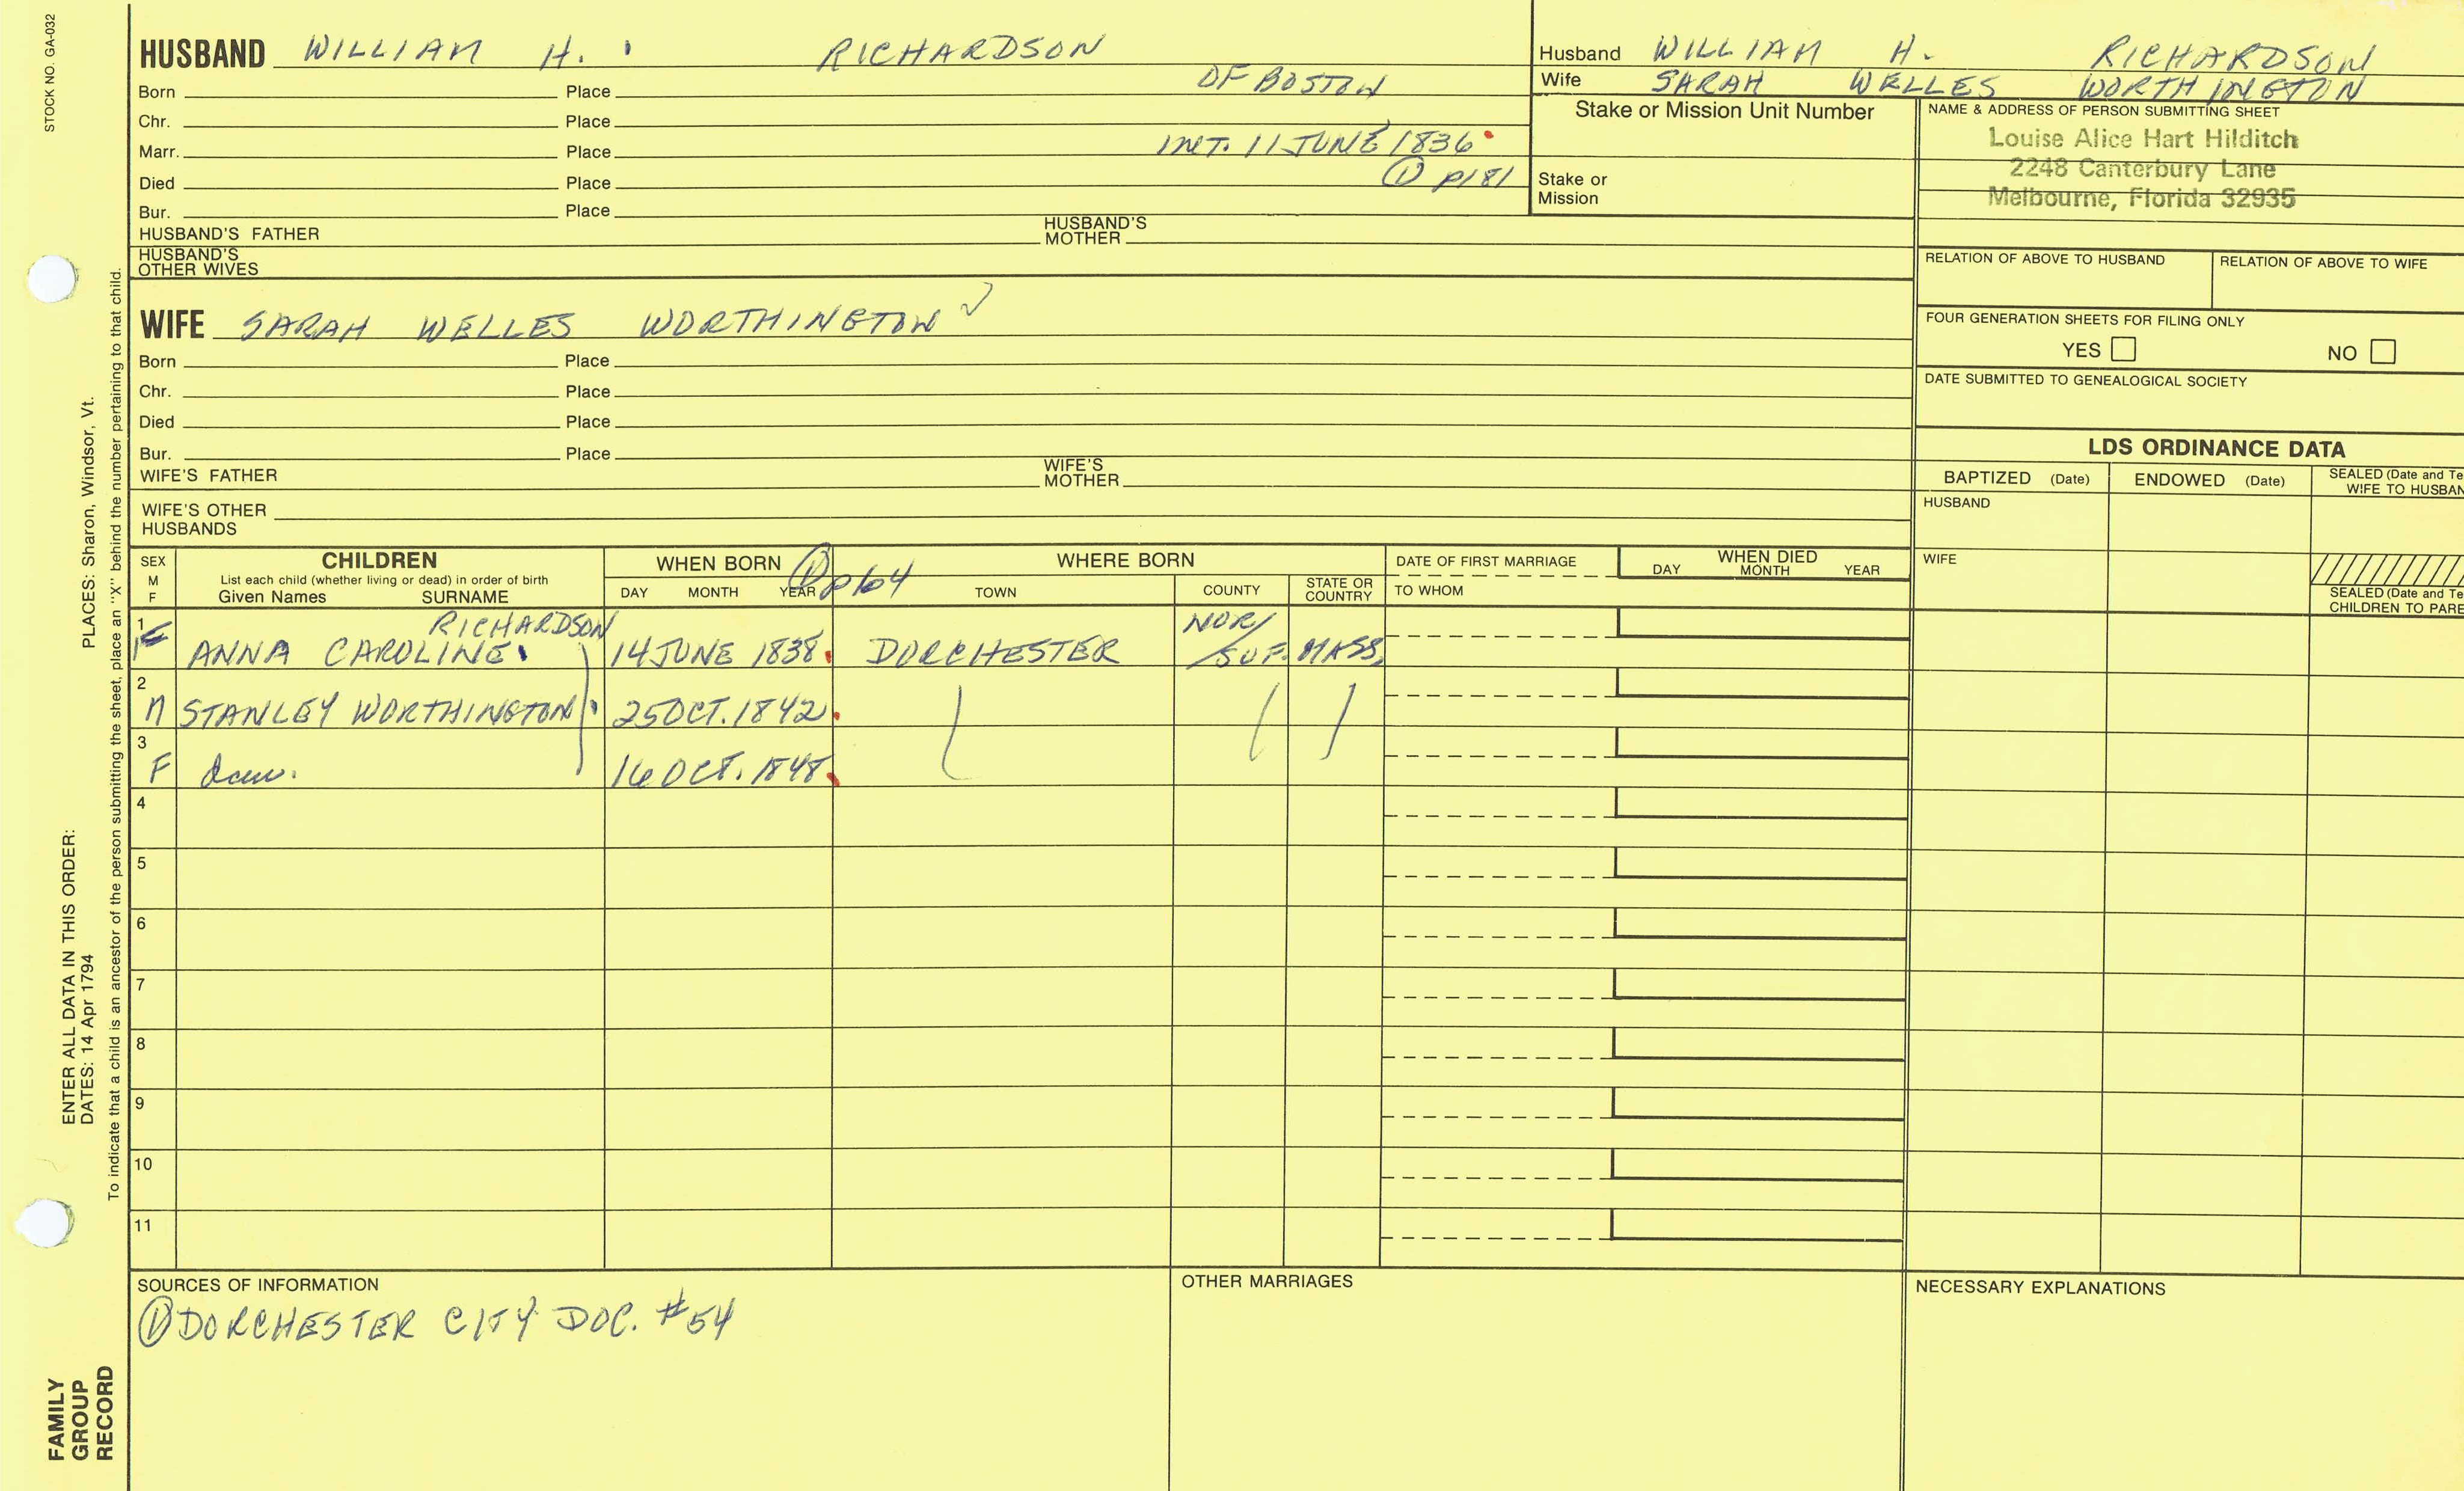 STOCK NO. GA-032
HUSBAND WILLIAM H. RICHARDSON
OF BOSTON
Born Place
Chr. Place
Marr. Place INT. 11 JUNE 1836
Died Place ① p181
Bur. Place
HUSBAND'S FATHER HUSBAND'S MOTHER
HUSBAND'S OTHER WIVES
WIFE SARAH WELLES WORTHINGTON
Born Place
Chr. Place
Died Place
Bur. Place
WIFE'S FATHER WIFE'S MOTHER
WIFE'S OTHER HUSBANDS
Husband WILLIAM H. RICHARDSON
Wife SARAH WELLES WORTHINGTON
Stake or Mission Unit Number
Stake or Mission
NAME & ADDRESS OF PERSON SUBMITTING SHEET
Louise Alice Hart Hilditch
2248 Canterbury Lane
Melbourne, Florida 32935
RELATION OF ABOVE TO HUSBAND RELATION OF ABOVE TO WIFE
FOUR GENERATION SHEETS FOR FILING ONLY
YES NO
DATE SUBMITTED TO GENEALOGICAL SOCIETY
LDS ORDINANCE DATA
BAPTIZED (Date) ENDOWED (Date) SEALED (Date and Te
WIFE TO HUSBAN
HUSBAND
WIFE
SEALED (Date and Te
CHILDREN TO PARE
SEX M F
CHILDREN
List each child (whether living or dead) in order of birth
Given Names SURNAME
WHEN BORN ① p64
DAY MONTH YEAR
WHERE BORN
TOWN COUNTY STATE OR COUNTRY
DATE OF FIRST MARRIAGE
TO WHOM
WHEN DIED
DAY MONTH YEAR
RICHARDSON NOR/
1 F ANNA CAROLINE 14 JUNE 1838 DORCHESTER SUF. MASS.
2 M STANLEY WORTHINGTON 25 OCT. 1842
3 F dau. 16 OCT. 1848
4
5
6
7
8
9
10
11
SOURCES OF INFORMATION
① DORCHESTER CITY DOC. #54
OTHER MARRIAGES
NECESSARY EXPLANATIONS
ENTER ALL DATA IN THIS ORDER:
DATES: 14 Apr 1794 PLACES: Sharon, Windsor, Vt.
To indicate that a child is an ancestor of the person submitting the sheet, place an "X" behind the number pertaining to that child.
FAMILY
GROUP
RECORD